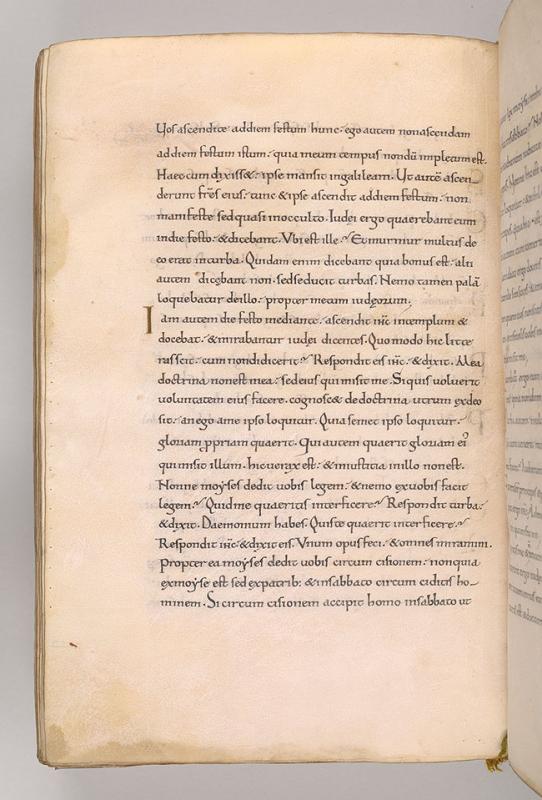 Uos ascendite addiem festum hunc· ego autem nonascendam
addiem festum istum· quia meum tempus nondū impletum est·
Haec cum dixiss&· ipse mansit ingalilaea· Ut autē ascen
derunt frēs eius· tunc &ipse ascendit addiem festum· non
manifeste sedquasi inocculto· Iudęi ergo quaerebant eum
indie festo· &dicebant· Vbi est ille· Etmurmur multus de
eo erat inturba· Quidam enim dicebant quia bonus est· alii
autem dicebant non· sedseducit turbas· Nemo tamen palā
loquebatur deillo· propter metum iudęorum·
Iam autem die festo mediante· ascendit ihc intemplum &
docebat· &mirabantur iudei dicentes· Quo modo hic litte
ras scit· cum nondidicerit· Respondit eis ihc· &dixit· Mea
doctrina nonest mea· sed eius qui misit me· Siquis voluerit
voluntatem eius facere· cognosc& dedoctrina utrum exdeo
sit· an ego ame ipso loquutur· Quia semet ipso loquitur·
gloriam ppriam quaerit· Qui autem quaerit gloriam ei
qui misit illum· hic uerax est· &iniustitia inillo non est·
Nonne moyses dedit uobis legem· &nemo exuobis facit
legem· Quid me quaeritis interficere· Respondit turba·
&dixit· Daemonium habes· Quis te quaerit interficere
Respondit ihc &dixit eis· Vnum opus feci· &omnes miramini·
Propter ea moyses dedit uobis circum cisionem· non quia
exmoyse est sed expatrib· &insabbato circum ciditis ho
minem· Si circum cisionem accipit homo insabbato ut